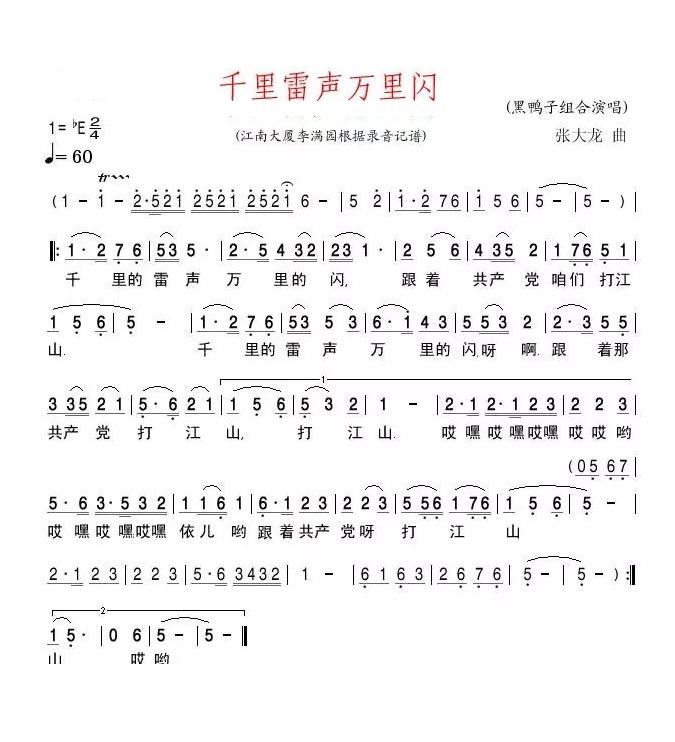 千里雷声万里闪
(黑鸭子组合演唱)
1= ♭E 2/4
(江南大厦李满园根据录音记谱)
张大龙 曲
♩= 60
( 1 - | 1 - | 2·521 2521 | 2521 6 - | 5 2 | 1·2 76 | 1 5 6 | 5 - | 5 - ) |
‖: 1·2 7 6 | 53 5· | 2·5 4 32 | 23 1· | 2 5 6 | 4 35 2 | 1 76 5 1 |
千 里的 雷 声 万 里的 闪, 跟 着 共产 党 咱们 打江
1 5 6 | 5 - | 1·2 7 6 | 53 5 3 | 6·1 4 3 | 5 53 2 | 2·3 5 5 |
山. 千 里的 雷 声 万 里的 闪呀 啊. 跟 着那
1
3 35 2 1 | 5·6 2 1 | 1 5 6 | 5·3 2 | 1 - | 2·1 2·321 | 2 5 6 |
共产 党 打 江 山, 打 江 山. 哎嘿 哎嘿哎嘿 哎哎哟
(05 67
5·6 3·532 | 1 16 1 | 6·1 2 3 | 2 2 3 | 5 56 1 76 | 1 5 6 | 5 - ) |
哎嘿 哎嘿哎嘿 依儿 哟 跟着共产 党呀 打 江 山
2·1 2 3 | 2 2 3 | 5·6 3432 | 1 - | 6 1 6 3 | 2 6 7 6 | 5 - | 5 - ) :‖
2
1 5· | 0 6 | 5 - | 5 - ‖
山 哎 哟